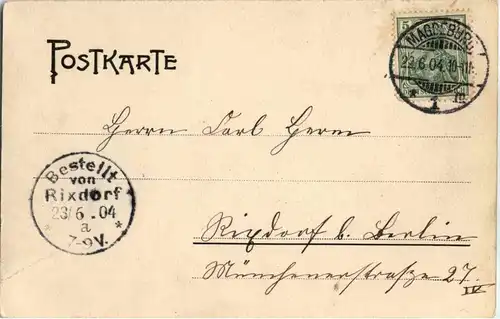 POSTKARTE
5
MAGDEBURG
22.6.04.10-11
* 1 n.
Herrn Carl Herm
Bestellt
von
Rixdorf
23/6.04
* a *
7-9V.
Rixdorf b. Berlin
Münchenerstraße 27
IV